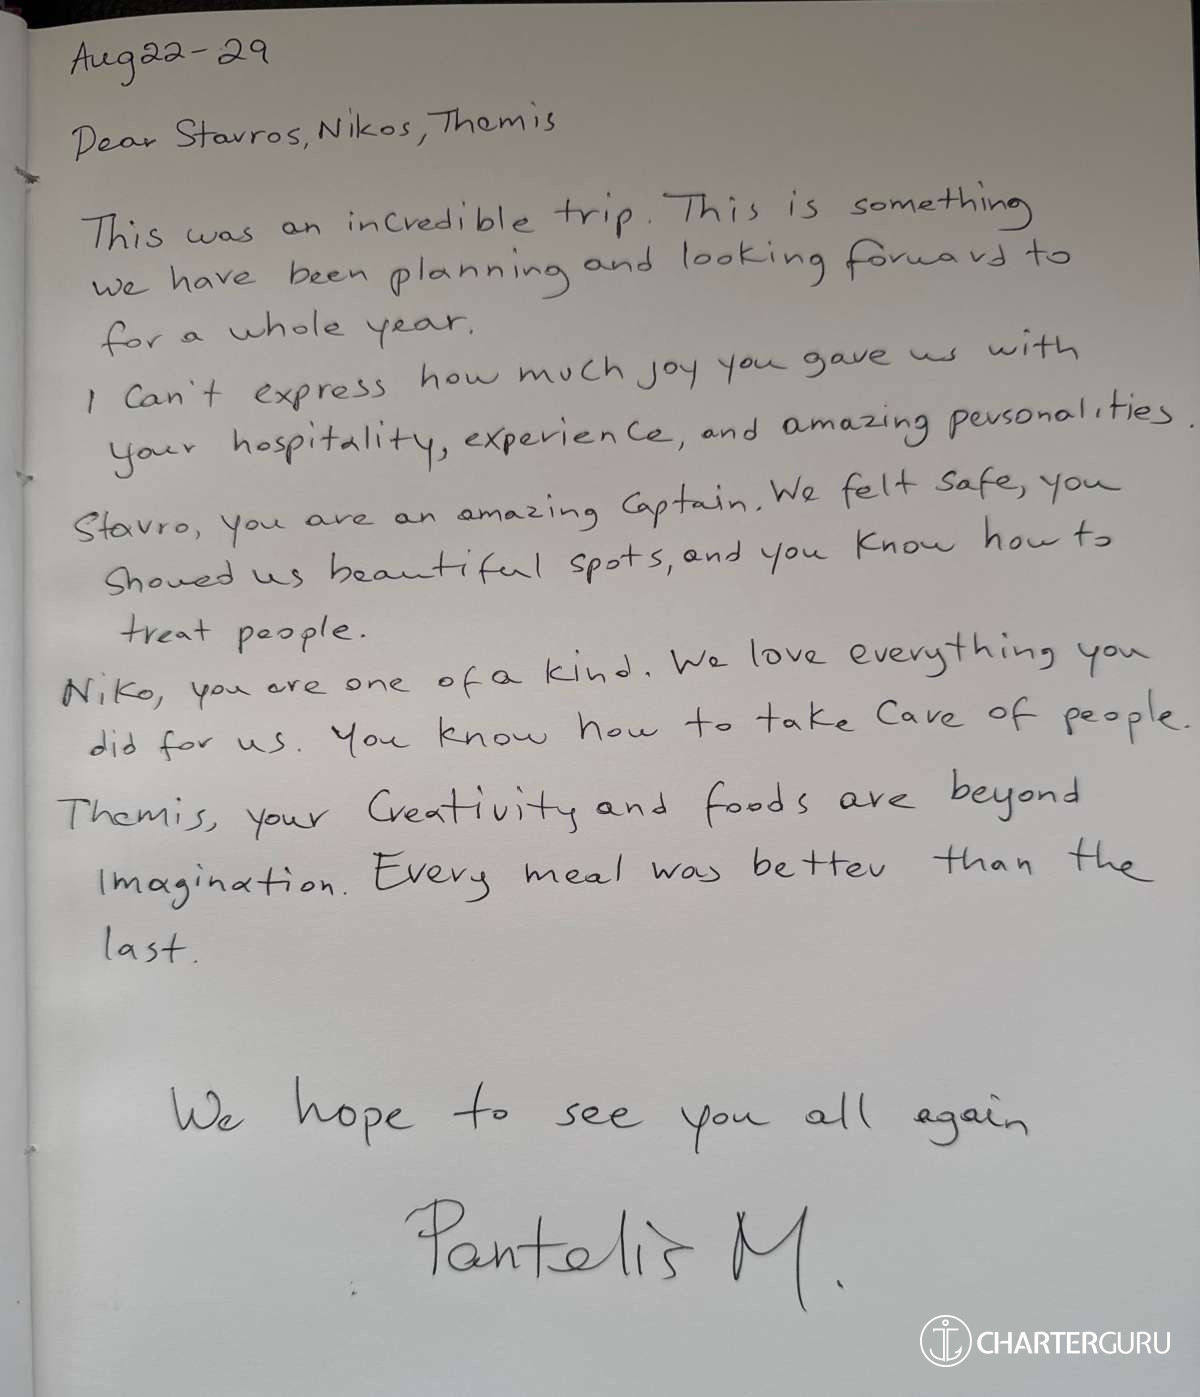 Aug 22-29
Dear Stavros, Nikos, Themis
This was an incredible trip. This is something
we have been planning and looking forward to
for a whole year.
I can't express how much joy you gave us with
your hospitality, experience, and amazing personalities.
Stavro, you are an amazing captain. We felt safe, you
showed us beautiful spots, and you know how to
treat people.
Niko, you are one of a kind. We love everything you
did for us. You know how to take care of people.
Themis, your creativity and foods are beyond
imagination. Every meal was better than the
last.
We hope to see you all again
Pantelis M.
CHARTERGURU